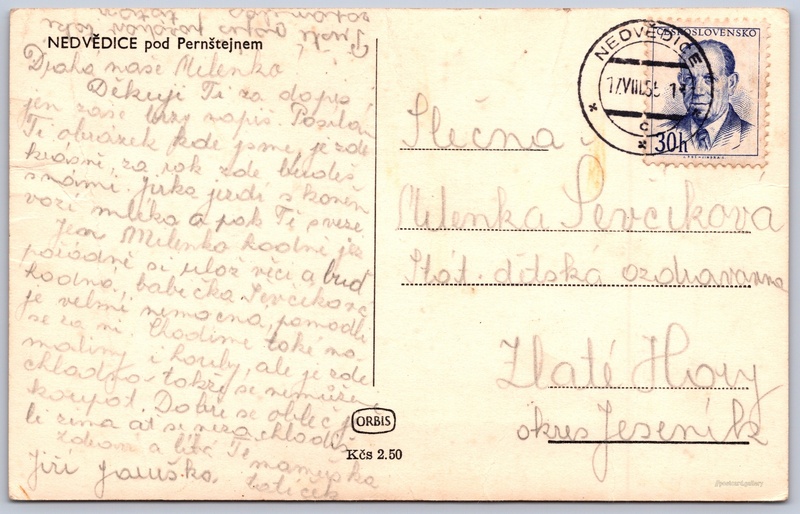 NEDVĚDICE pod Pernštejnem
Drahá naše Milenko
Děkuji Ti za dopis,
jen zase brzy napiš. Posílám
Ti obrázek kde jsme, je zde
krásně, za rok zde budeš
s námi. Jirka jezdí s koněm
vozí mléko a pak Tě sveze
Jen Milenko hodně jez
pořádně si ulož věci a buď
hodná, babička Ševčíkova
je velmi nemocna, pomodli
se za ní. Chodíme také na
maliny i houby, ale je zde
chladno takže se nemůžem
koupat. Dobře se obleč je
li zima ať se nezachladíš
Zdraví a líbá Tě maminka
Jiří Januško. tatíček
ORBIS
Kčs 2.50
NEDVĚDICE
17.VIII.55
c
ČESKOSLOVENSKO
30h
Slečna
Milenka Ševčíková
Stát. dětská ozdravovna
Zlaté Hory
okres Jeseník